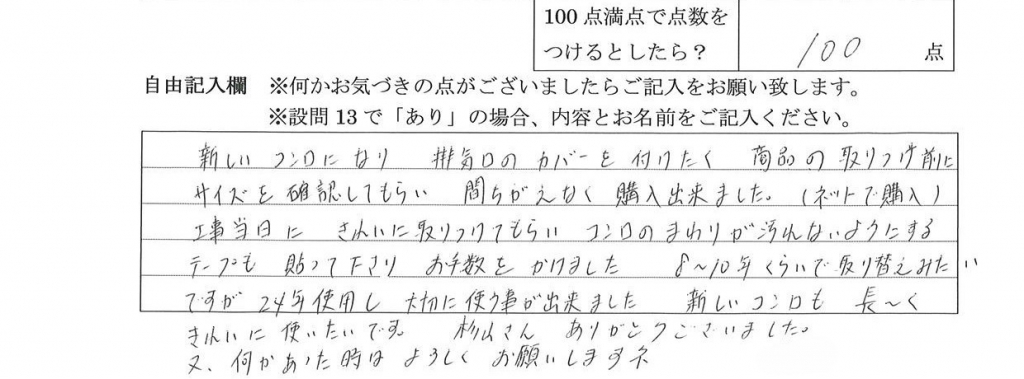 100点満点で点数を
つけるとしたら？
100 点
自由記入欄 ※何かお気づきの点がございましたらご記入をお願い致します。
※設問13で「あり」の場合、内容とお名前をご記入ください。
新しいコンロになり 排気口のカバーを付けたく 商品の取りつけ前に
サイズを確認してもらい 間ちがえなく購入出来ました。（ネットで購入）
工事当日に きれいに取りつけてもらい コンロのまわりが汚れないようにする
テープも 貼って下さり お手数をかけました 8〜10年くらいで取り替えみたい
ですが 24年使用し 大切に使う事が出来ました 新しいコンロも 長〜く
きれいに使いたいです。 杉山さん ありがとうございました。
又、何かあった時は よろしく お願いしますネ